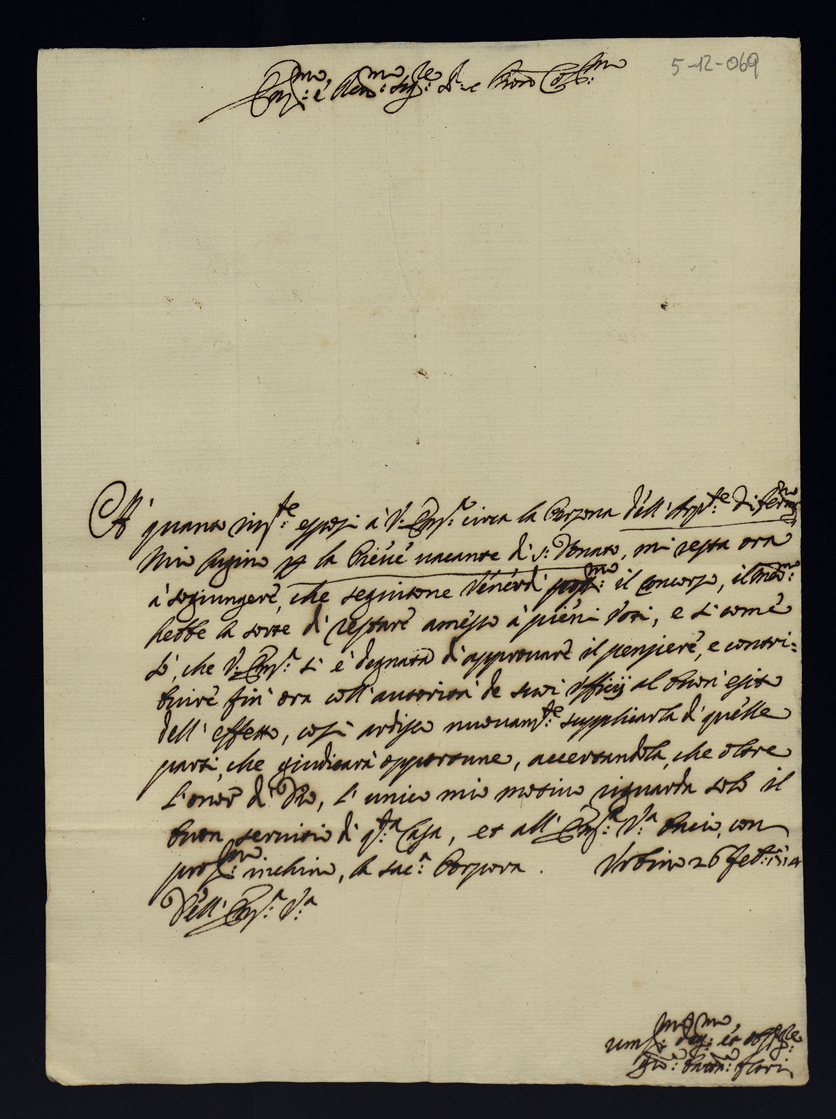 5-12-069
Em.mo e Rev.mo Sig.re Sr. e Pron Col.mo
A' quanto esposi à V. Em.a circa la Persona dell'
Mio Cugino p la Pieve vacante di S. Donato, mi resta ora
à sogiungere, che seguitone Venerdì pross.mo il Concorso, il
hebbe la sorte di restare amesso à pieni Voti, e si come
sò, che V. Em.a si è degnata di approvare il pensiere, e contri-
buire fin' ora coll' autorità de suoi Ufficij al buon esito
dell' effetto, così ardisco nuovam.te supplicarla di quelle
parti, che giudicarà opportune, accertandola, che oltre
L'onor di Dio, l'unico mio motivo riguarda solo il
buon servitio di q.ta Casa, et all' Em.a V.a bacio, con
prof.mo inchino, la sac.a Porpora. Urbino 26 Feb. 1714
Dell' Em.a V.a
um.mo dev.mo et obl.